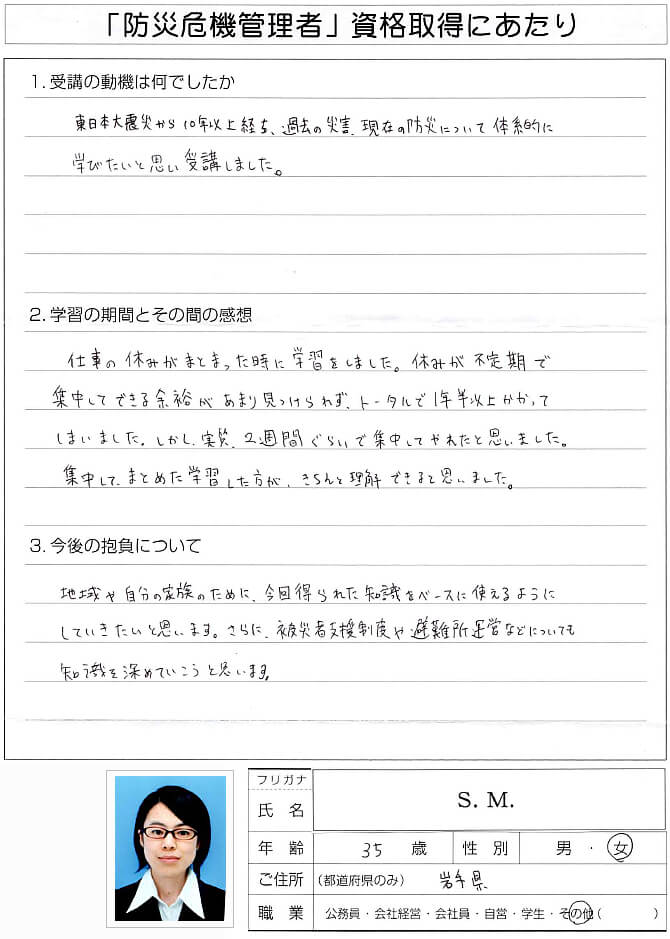 「防災危機管理者」資格取得にあたり
1.受講の動機は何でしたか
東日本大震災から10年以上経ち、過去の災害、現在の防災について体系的に
学びたいと思い受講しました。
2.学習の期間とその間の感想
仕事の休みがまとまった時に学習をしました。休みが不定期で
集中してできる余裕があまり見つけられず、トータルで1年半以上かかって
しまいました。しかし、実質、2週間ぐらいで集中してやれたと思いました。
集中して、まとめた学習した方が、きちんと理解できると思いました。
3.今後の抱負について
地域や自分の家族のために、今回得られた知識をベースに使えるように
していきたいと思います。さらに、被災者支援制度や避難所運営などについても
知識を深めていこうと思います。
フリガナ
氏名 S. M.
年齢 35 歳 性別 男・女
ご住所 (都道府県のみ) 岩手県
職業 公務員・会社経営・会社員・自営・学生・その他( )